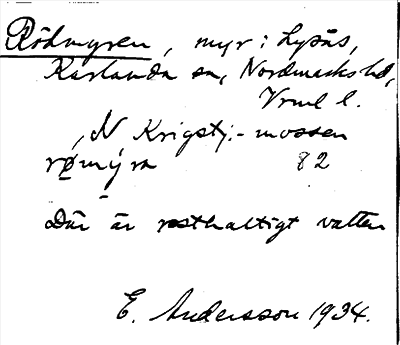 Rödmyren, myr i Lysås,
Karlanda sn, Nordmarks hd,
Vrml l.
N Krigstj:-mossen
römy̱ra 82
Där är rosthaltigt vatten
E. Andersson 1934.